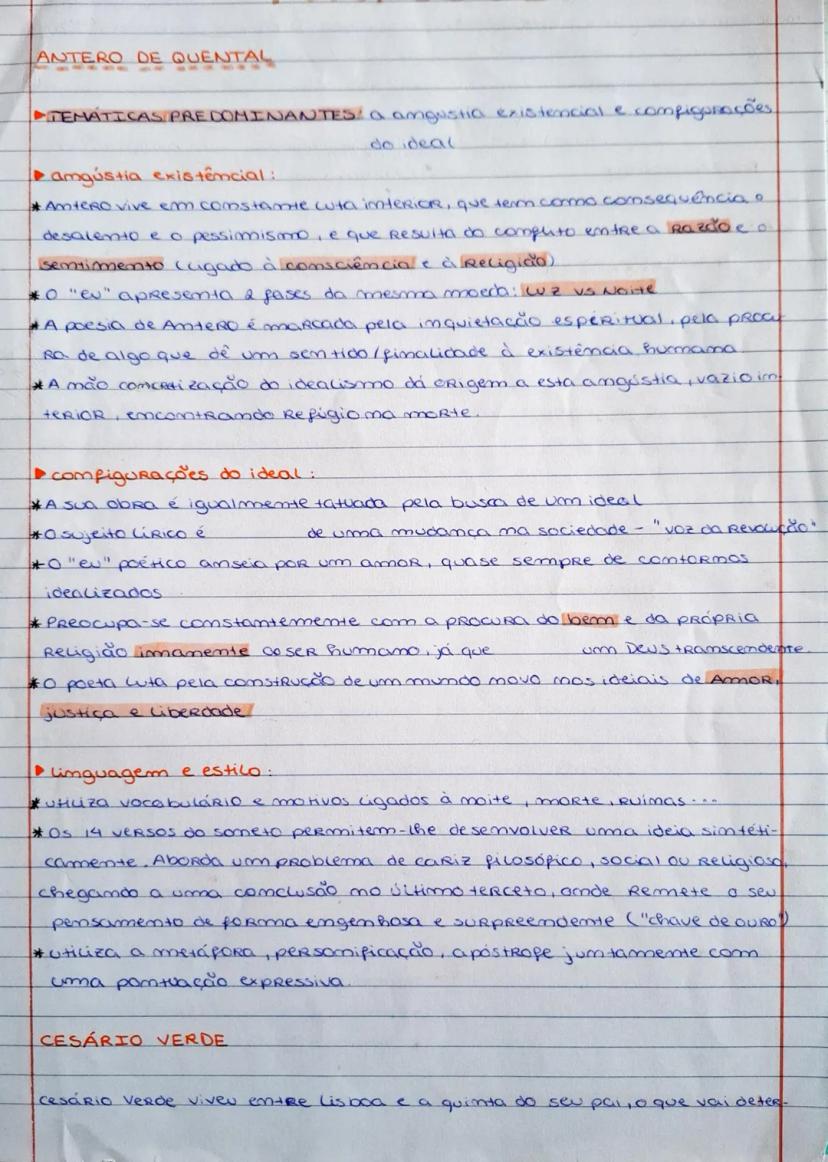 ANTERO DE QUENTAL
TEMÁTICAS PREDOMINANTES: a angústia existencial e configurações
do ideal
angústia existêncial:
* Antero vive em constante luta interior, que tem como consequência o
desalento e o pessimismo, e que resulta do conflito entre a Razão e o
sentimento (ligado à consciência e à Religião)
* O "eu" apresenta 2 fases da mesma moeda: Luz vs Noite
* A poesia de Antero é marcada pela inquietação espiritual, pela procu
ra de algo que dê um sentido/finalidade à existência humana
* A não concretização do idealismo dá origem a esta angústia, vazio in
terior, encontrando refúgio na morte.
configurações do ideal:
* A sua obra é igualmente tatuada pela busca de um ideal
* O sujeito lírico é de uma mudança na sociedade - "voz da Revolução"
* O "eu" poético anseia por um amor, quase sempre de contornos
idealizados.
* Preocupa-se constantemente com a procura do bem e da própria
Religião imanente ao ser humano, já que um Deus transcendente.
* O poeta luta pela construção de um mundo novo nos ideiais de Amor,
justiça e liberdade
linguagem e estilo:
* utiliza vocabulário e motivos ligados à noite, morte, ruínas...
* Os 14 versos do soneto permitem-lhe desenvolver uma ideia sintéti-
camente. Aborda um problema de cariz filosófico, social ou religioso,
chegando a uma conclusão no último terceto, onde remete o seu
pensamento de forma engenhosa e surpreendente ("chave de ouro")
* utiliza a metáfora, personificação, apóstrofe juntamente com
uma pontuação expressiva.
CESÁRIO VERDE
Cesário Verde viveu entre Lisboa e a quinta do seu pai, o que vai deter-